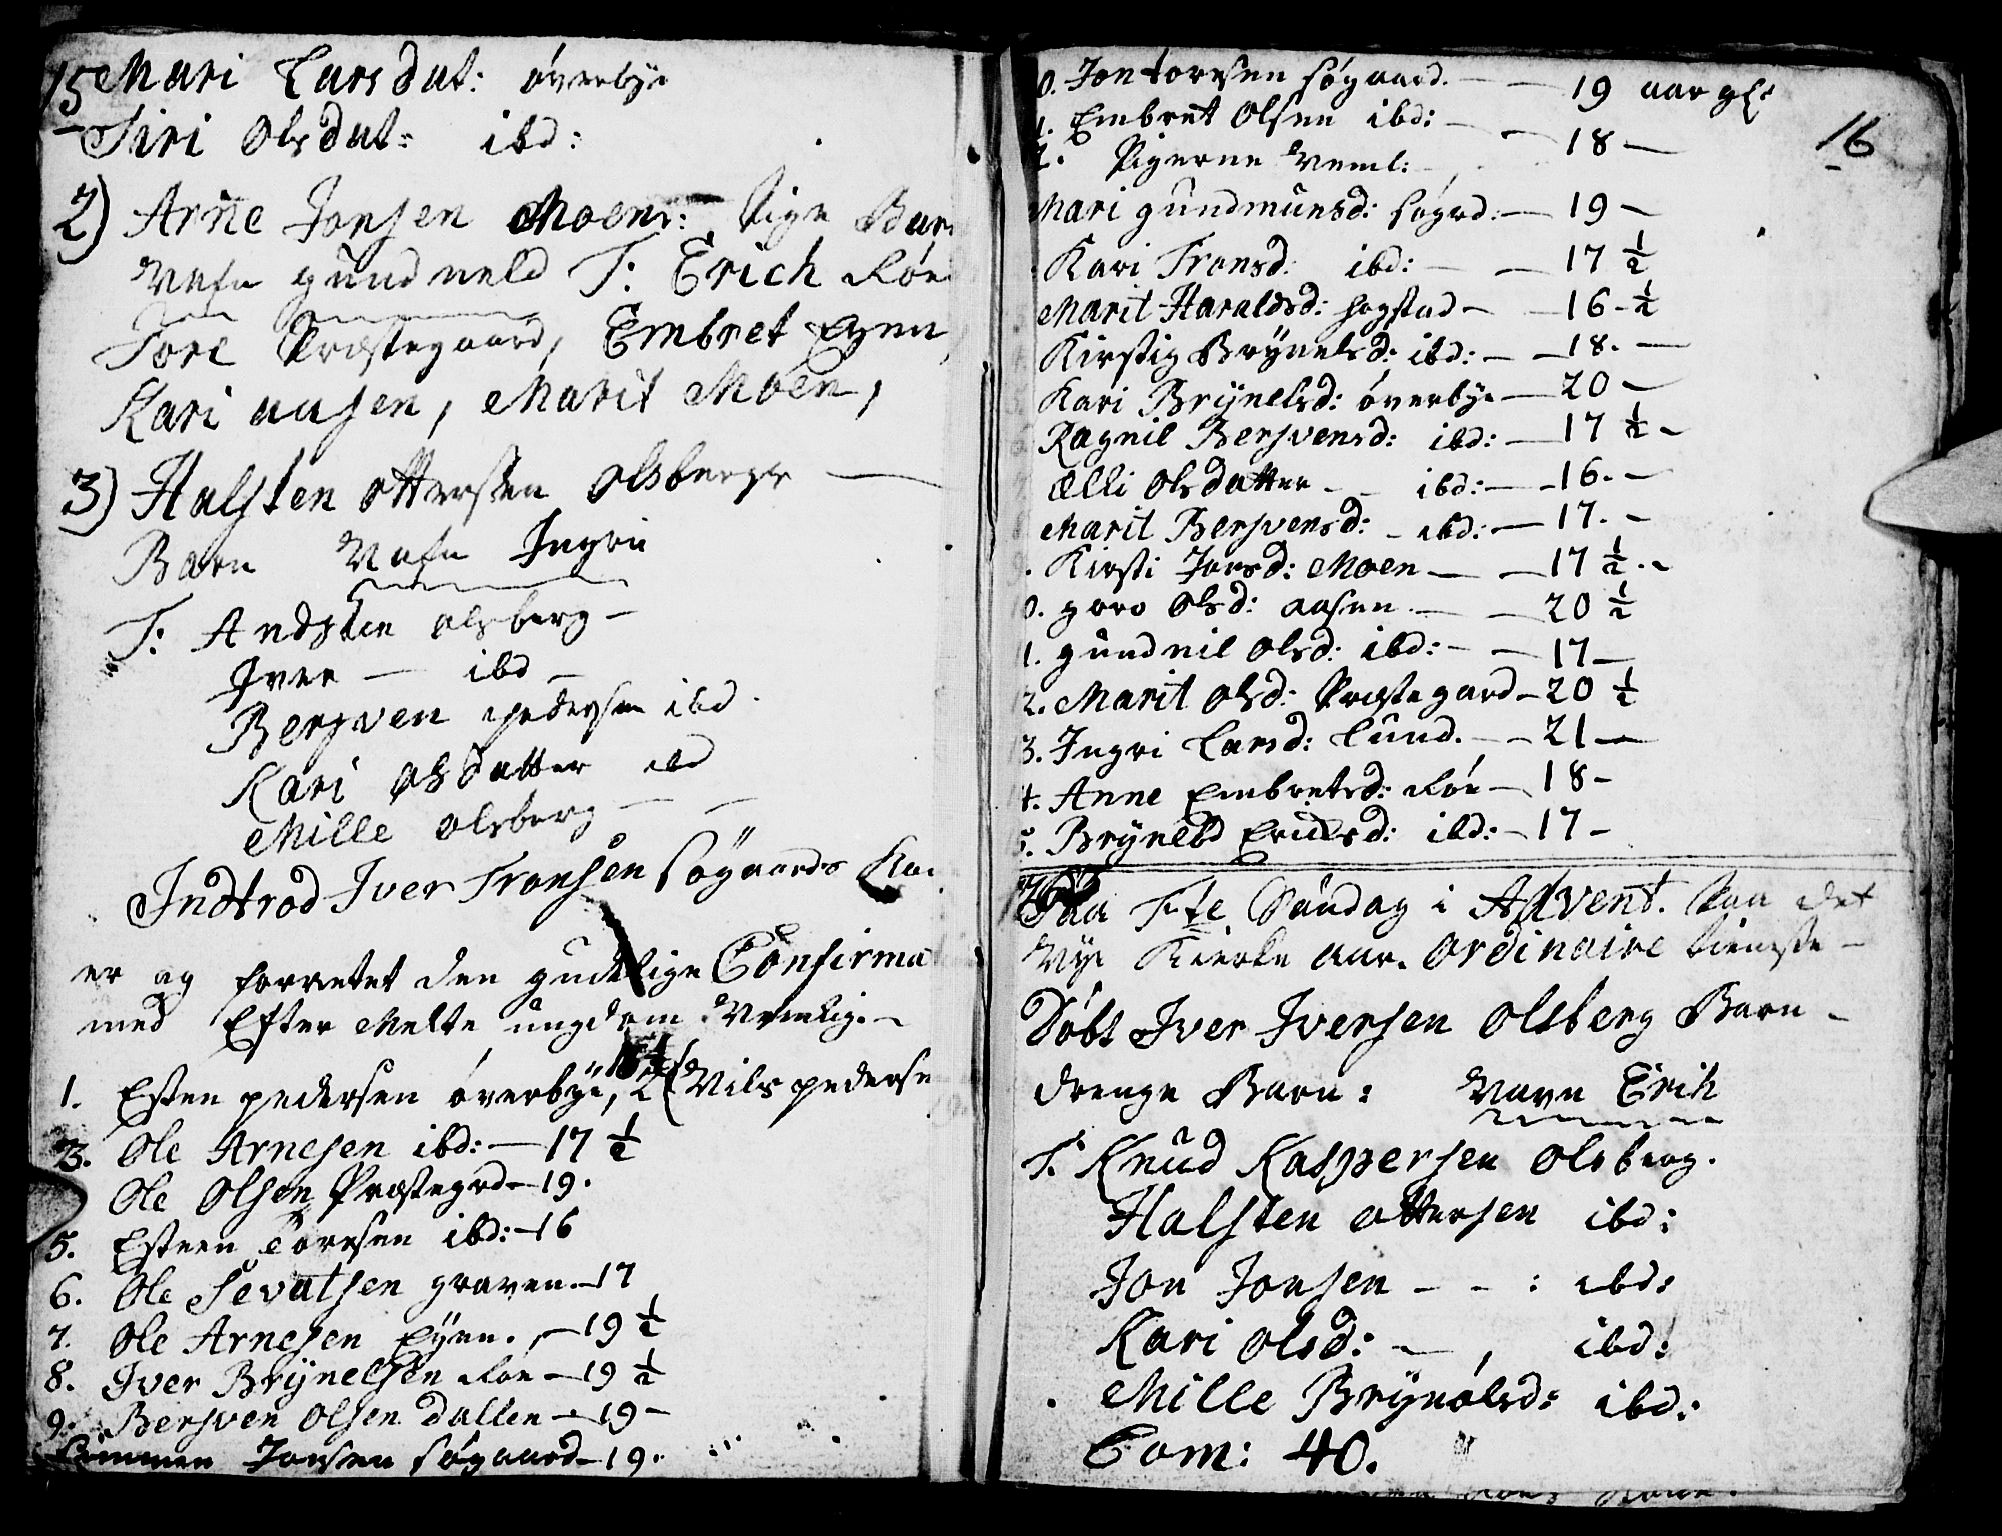 15 Mari Larsdat: øverbye
Siri Olsdat: ibd:
2) Arne Jonsen Moens: Pige Barn
Nafn Gundneld T: Erich Røe
Tore Præstegaard, Embret Eyen,
Kari Aasen, Marit Moen,
3) Halsten Ottersen Olsbergs —
Barn Nafn Ingri
T: Andsten Olsberg —
Iver — ibd —
Bersven Pedersen ibd.
Kari Olsdatter ibd
Mille Olsberg — —
Indtrod Iver Tronsen Søgaards
er og forrettet den gudelige Confirma
med Efter Melte ungdom Nemlig. —
1. Esten Pedersen øverbye, 2 (Nils Pederse
3. Ole Arnesen ibd: — 17 1/2
Ole Olsen Præstegrd — 19.
5. Esteen Toresen ibd: — 16
6. Ole Sevatsen Graven — 17
7. Ole Arnesen Eyen. — 19 1/2
8. Iver Brynelsen Røe — 19 1/2
9. Bersven Olsen Dallen — 19 —
Simmen Jonsen Søgaard — 19.
16
0. Jon Toresen Søgaard. — — 19 aar gl:
1. Embret Olsen ibd: — — 18 —
2. Pigerne Neml:
Mari Gundmunsd: Søgrd: — 19 —
Kari Tronsd: ibd: — — 17 1/2
Marit Haraldsd: Hogstad — — 16 - 1/2
Kirstig Brynelsd: ibd: — — 18. —
Kari Brynelsd: øverbye — 20 —
Ragnil Bersvensd: ibd: — 17 1/2 —
Ælli Olsdatter — — ibd: — — 16. —
Marit Bersvensd: — ibd: — 17. —
Kirsti Jonsd: Moen — — 17 1/2. —
0. Goro Olsd: Aasen. — — 20 1/2
1. Gundnil Olsd: ibd: — — 17 —
2. Marit Olsd: Præstegard — 20 1/2
3. Ingri Larsd: Lund. — — 21 —
4. Anne Embretsd: Røe — 18 —
5. Bryneld Erichsd: ibd: — 17 —
Paa 1ste Søndag i Advent. Paa det
Nye Kierke Aar. Ordinaire tieneste —
Døbt Iver Iversen Olsberg Barn —
Drenge Barn: Navn Erik
T. Knud Kaspersen Olsberg.
Halsten Ottersen ibd:
Jon Jonsen — — : ibd:
Kari Olsd: — , ibd:
Mille Brynolsd: ibd:
Com: 40.